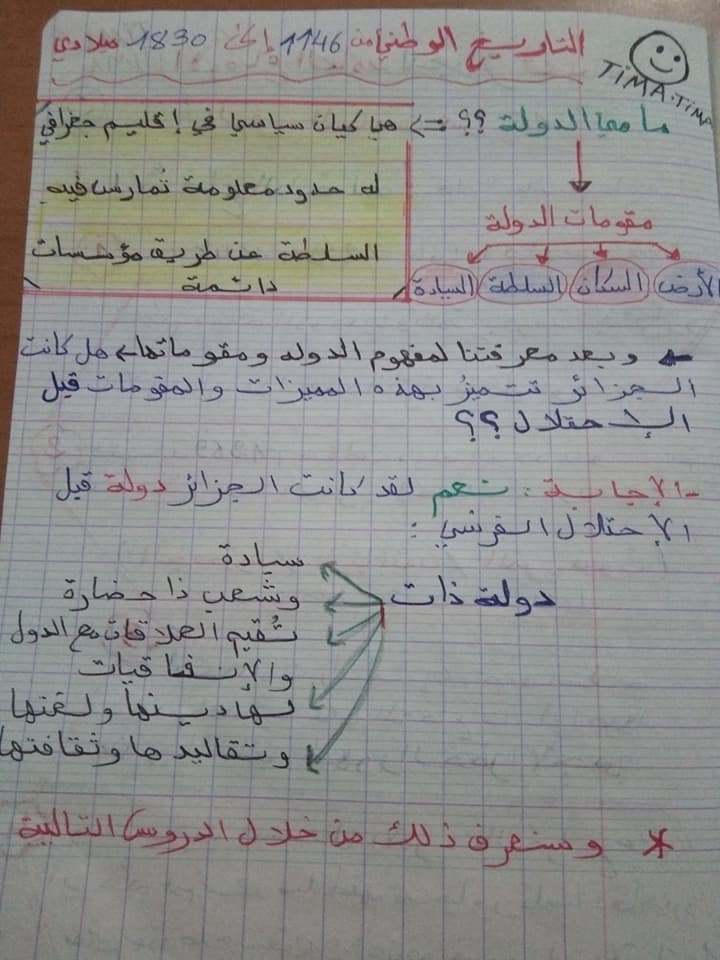 التاريخ الوطني من 1146 إلى 1830 ميلادي
TiMA.TiMA
ما هي الدولة ؟؟ => هيا كيان سياسي في إقليم جغرافي
له حدود معلومة تُمارس فيه
السلطة عن طريق مؤسسات
دائمة
مقومات الدولة
الأرض السكان السلطة السيادة
← وبعد معرفتنا لمفهوم الدوله ومقوماتها، هل كانت
الجزائر تتميزُ بهذه المميزات والمقومات قبل
الإحتلال ؟؟
-الإجابة : نعم لقد كانت الجزائر دولة قبل
الإحتلال الفرنسي :
دولة ذات
سيادة
وشعب ذا حضارة
تُقيم العلاقات مع الدول
والإتفاقيات
لها دينها ولغتها
وتقاليدها وثقافتها
* وسنعرف ذلك من خلال الدروس التالية